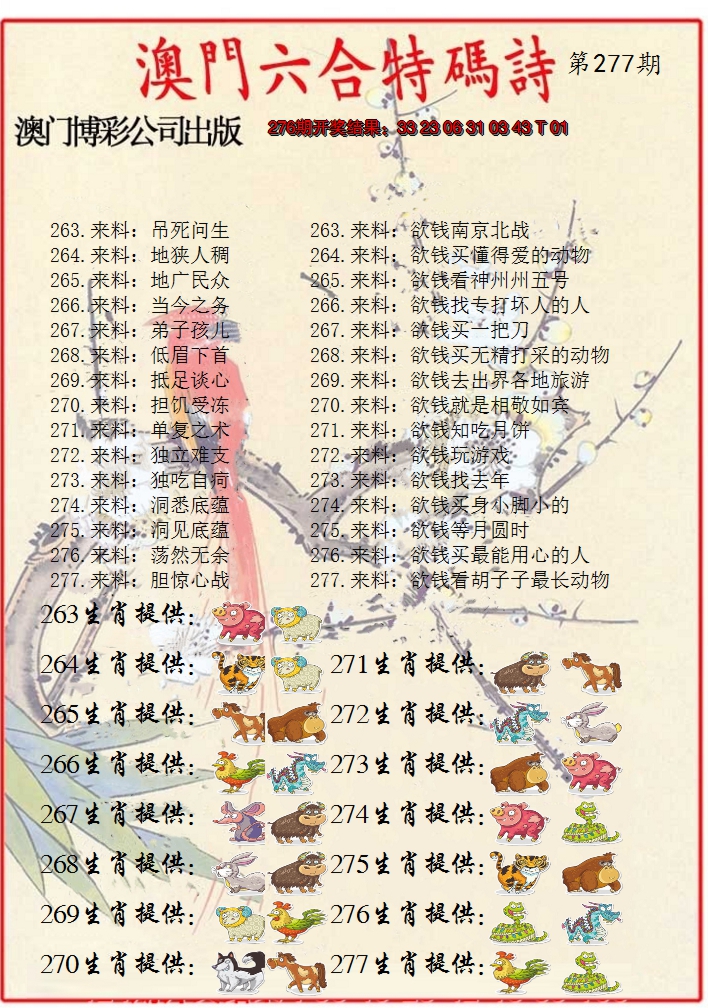 澳門六合特碼詩 第277期
澳门博彩公司出版 276期开奖结果：33 23 06 31 03 43 T 01
263.来料：吊死问生 263.来料：欲钱南京北战
264.来料：地狭人稠 264.来料：欲钱买懂得爱的动物
265.来料：地广民众 265.来料：欲钱看神州州五号
266.来料：当今之务 266.来料：欲钱找专打坏人的人
267.来料：弟子孩儿 267.来料：欲钱买一把刀
268.来料：低眉下首 268.来料：欲钱买无精打采的动物
269.来料：抵足谈心 269.来料：欲钱去出界各地旅游
270.来料：担饥受冻 270.来料：欲钱就是相敬如宾
271.来料：单复之术 271.来料：欲钱知吃月饼
272.来料：独立难支 272.来料：欲钱玩游戏
273.来料：独吃自疴 273.来料：欲钱找去年
274.来料：洞悉底蕴 274.来料：欲钱买身小脚小的
275.来料：洞见底蕴 275.来料：欲钱等月圆时
276.来料：荡然无余 276.来料：欲钱买最能用心的人
277.来料：胆惊心战 277.来料：欲钱看胡子子最长动物
263生肖提供：
264生肖提供： 271生肖提供：
265生肖提供： 272生肖提供：
266生肖提供： 273生肖提供：
267生肖提供： 274生肖提供：
268生肖提供： 275生肖提供：
269生肖提供： 276生肖提供：
270生肖提供： 277生肖提供：